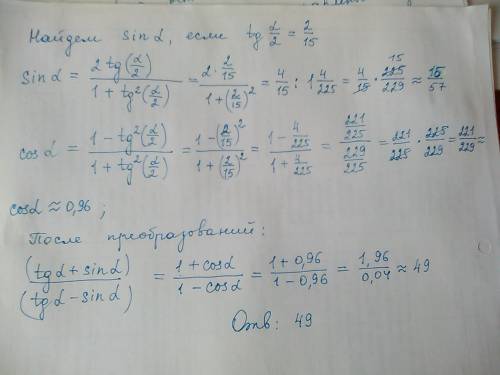 Найдем sin α, если tg α/2 = 2/15
sin α = 2 tg(α/2) / 1 + tg²(α/2) = 2·2/15 / 1+(2/15)² = 4/15 : 1 4/225 = 4/15 · 225/229 15 ≈ 15/57
cos α = 1 - tg²(α/2) / 1 + tg²(α/2) = 1-(2/15)² / 1+(2/15)² = 1 - 4/225 / 1 + 4/225 = 221/225 / 229/225 = 221/225 · 225/229 = 221/229 ≈
cos α ≈ 0,96 ;
После преобразований:
(tg α + sin α) / (tg α - sin α) = 1 + cos α / 1 - cos α = 1 + 0,96 / 1 - 0,96 = 1,96 / 0,04 ≈ 49
Отв: 49